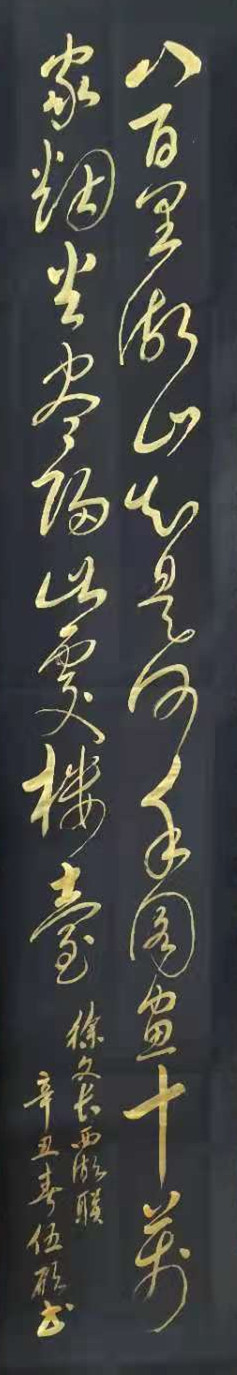 八百里湖山知是何年圖畫十萬
家烟火盡歸此處樓臺
徐文長西湖聯
辛丑春伍書